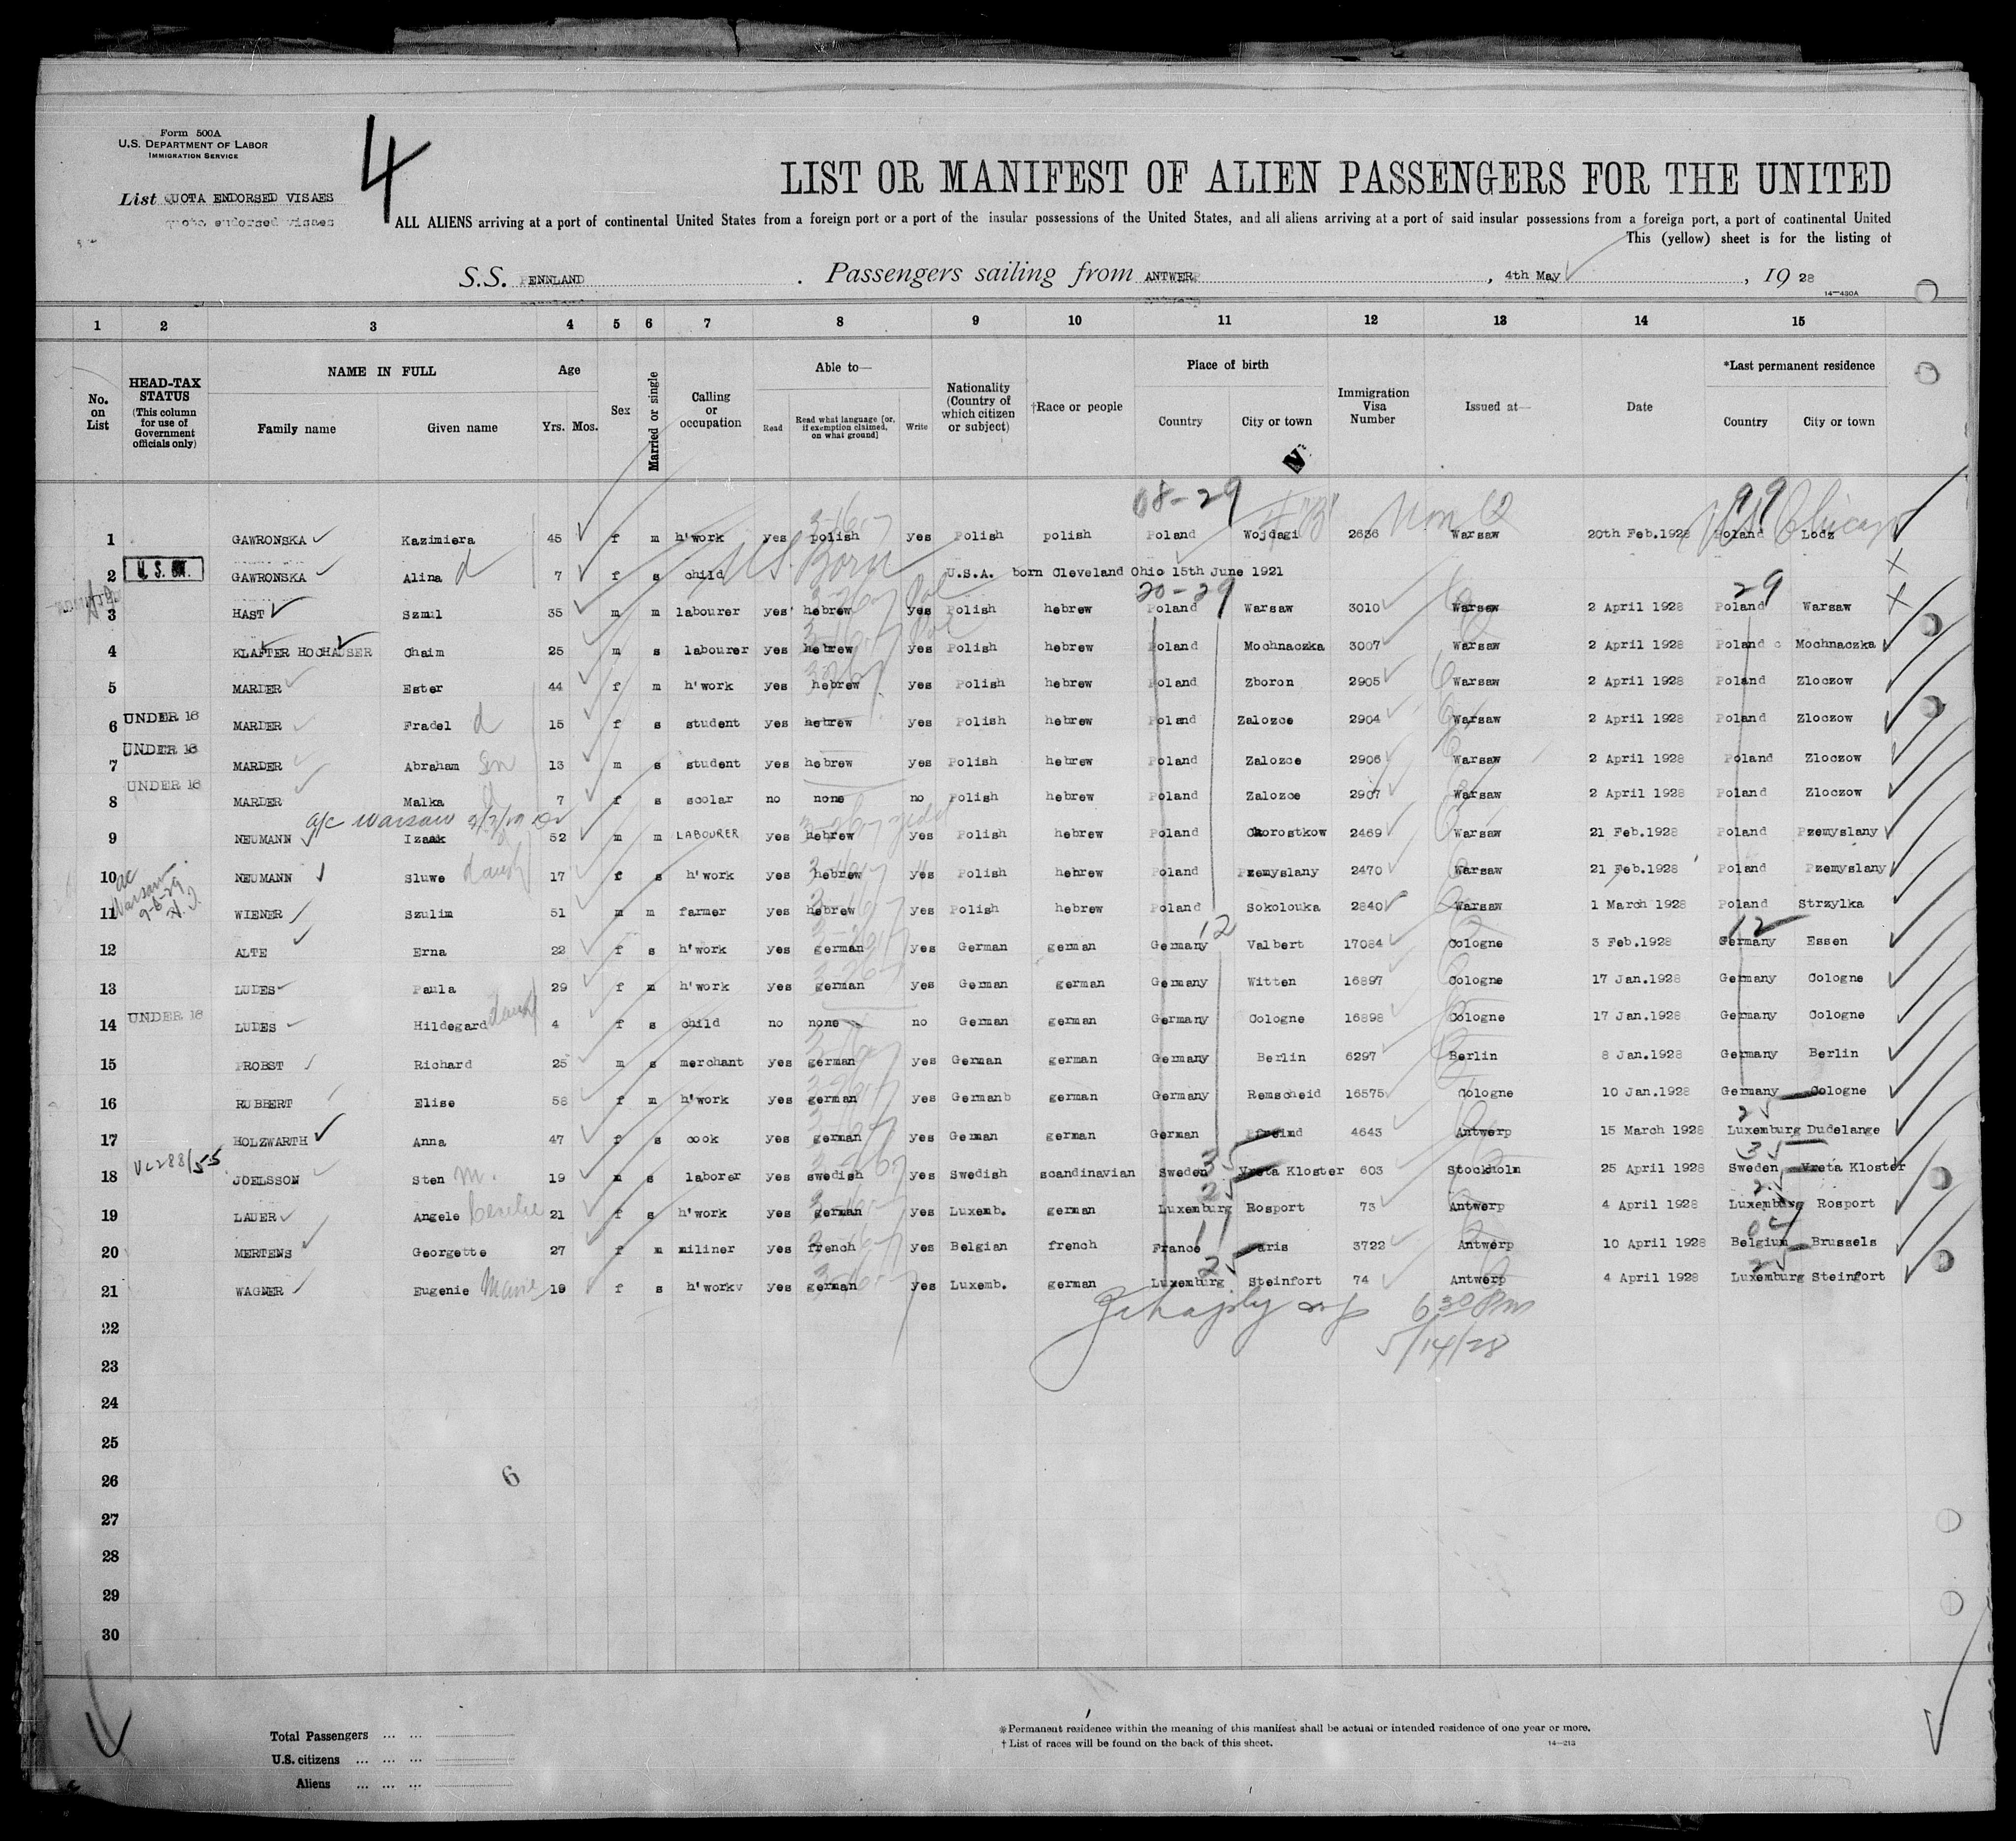 Form 500A
U.S. DEPARTMENT OF LABOR
IMMIGRATION SERVICE
4
LIST OR MANIFEST OF ALIEN PASSENGERS FOR THE UNITED
List QUOTA ENDORSED VISAES
quota endorsed visaes
ALL ALIENS arriving at a port of continental United States from a foreign port or a port of the insular possessions of the United States, and all aliens arriving at a port of said insular possessions from a foreign port, a port of continental United
This (yellow) sheet is for the listing of
S.S. PENNLAND . Passengers sailing from ANTWERP , 4th May , 19 28
14—430A
1 2 3 4 5 6 7 8 9 10 11 12 13 14 15
No. on List
HEAD-TAX STATUS (This column for use of Government officials only)
NAME IN FULL
Family name Given name
Age
Yrs. Mos.
Sex
Married or single
Calling or occupation
Able to—
Read Read what language [or, if exemption claimed, on what ground] Write
Nationality (Country of which citizen or subject)
†Race or people
Place of birth
Country City or town
Immigration Visa Number
Issued at—
Date
*Last permanent residence
Country City or town
08-29 99
1 GAWRONSKA Kazimiera 45 f m h'work yes polish yes Polish polish Poland Wojdagi 2636 Non Q Warsaw 20th Feb.1928 Poland Lodz US Chicago
2 U.S. GAWRONSKA Alina d 7 f s child US Born U.S.A. born Cleveland Ohio 15th June 1921
20-29 29
3 HAST Szmul 35 m m labourer yes hebrew yes Polish hebrew Poland Warsaw 3010 Warsaw 2 April 1928 Poland Warsaw
4 KLAFTER HOCHAUSER Chaim 25 m s labourer yes hebrew yes Polish hebrew Poland Mochnaczka 3007 Warsaw 2 April 1928 Poland c Mochnaczka
5 MARDER Ester 44 f m h'work yes hebrew yes Polish hebrew Poland Zboron 2905 Warsaw 2 April 1928 Poland Zloczow
6 UNDER 16 MARDER Fradel d 15 f s student yes hebrew yes Polish hebrew Poland Zalozce 2904 Warsaw 2 April 1928 Poland Zloczow
7 UNDER 16 MARDER Abraham son 13 m s student yes hebrew yes Polish hebrew Poland Zalozce 2906 Warsaw 2 April 1928 Poland Zloczow
8 UNDER 16 MARDER Malka d 7 f s scolar no none no Polish hebrew Poland Zalozce 2907 Warsaw 2 April 1928 Poland Zloczow
a/c Warsaw
9 NEUMANN Izaak 52 m m LABOURER yes hebrew yes Polish hebrew Poland Chorostkow 2469 Warsaw 21 Feb.1928 Poland Pzemyslany
10 NEUMANN Sluwe daugh 17 f s h'work yes hebrew yes Polish hebrew Poland Pzemyslany 2470 Warsaw 21 Feb.1928 Poland Pzemyslany
ac Warsaw 9-6-29
11 WIENER Szulim 51 m m farmer yes hebrew yes Polish hebrew Poland Sokolouka 2840 Warsaw 1 March 1928 Poland Strzylka
12 12
12 ALTE Erna 22 f s h'work yes german yes German german Germany Valbert 17084 Cologne 3 Feb.1928 Germany Essen
13 LUDES Paula 29 f m h'work yes german yes German german Germany Witten 16897 Cologne 17 Jan.1928 Germany Cologne
14 UNDER 16 LUDES Hildegard daugh 4 f s child no none no German german Germany Cologne 16898 Cologne 17 Jan.1928 Germany Cologne
15 PROBST Richard 25 m s merchant yes german yes German german Germany Berlin 6297 Berlin 8 Jan.1928 Germany Berlin
16 RUBBERT Elise 58 f m h'work yes german yes Germanb german Germany Remscheid 16575 Cologne 10 Jan.1928 Germany Cologne
25
17 HOLZWARTH Anna 47 f s cook yes german yes German german German 4643 Antwerp 15 March 1928 Luxemburg Dudelange
35 35
18 JOELSSON Sten M. 19 m s laborer yes swedish yes Swedish scandinavian Sweden Vreta Kloster 603 Stockholm 25 April 1928 Sweden Vreta Kloster
25 25
19 LAUER Angele 21 f s h'work yes german yes Luxemb. german Luxemburg Rosport 73 Antwerp 4 April 1928 Luxemburg Rosport
11 04
20 MERTENS Georgette 27 f m miliner yes french yes Belgian french France Paris 3722 Antwerp 10 April 1928 Belgium Brussels
25 25
21 WAGNER Eugenie Marie 19 f s h'workv yes german yes Luxemb. german Luxemburg Steinfort 74 Antwerp 4 April 1928 Luxemburg Steinfort
6 30 PM
22
5/14/28
23
24
25
26
6
27
28
29
30
Total Passengers ... ...
U.S. citizens ... ... ...
Aliens ... ... ...
*Permanent residence within the meaning of this manifest shall be actual or intended residence of one year or more.
† List of races will be found on the back of this sheet.
14—213